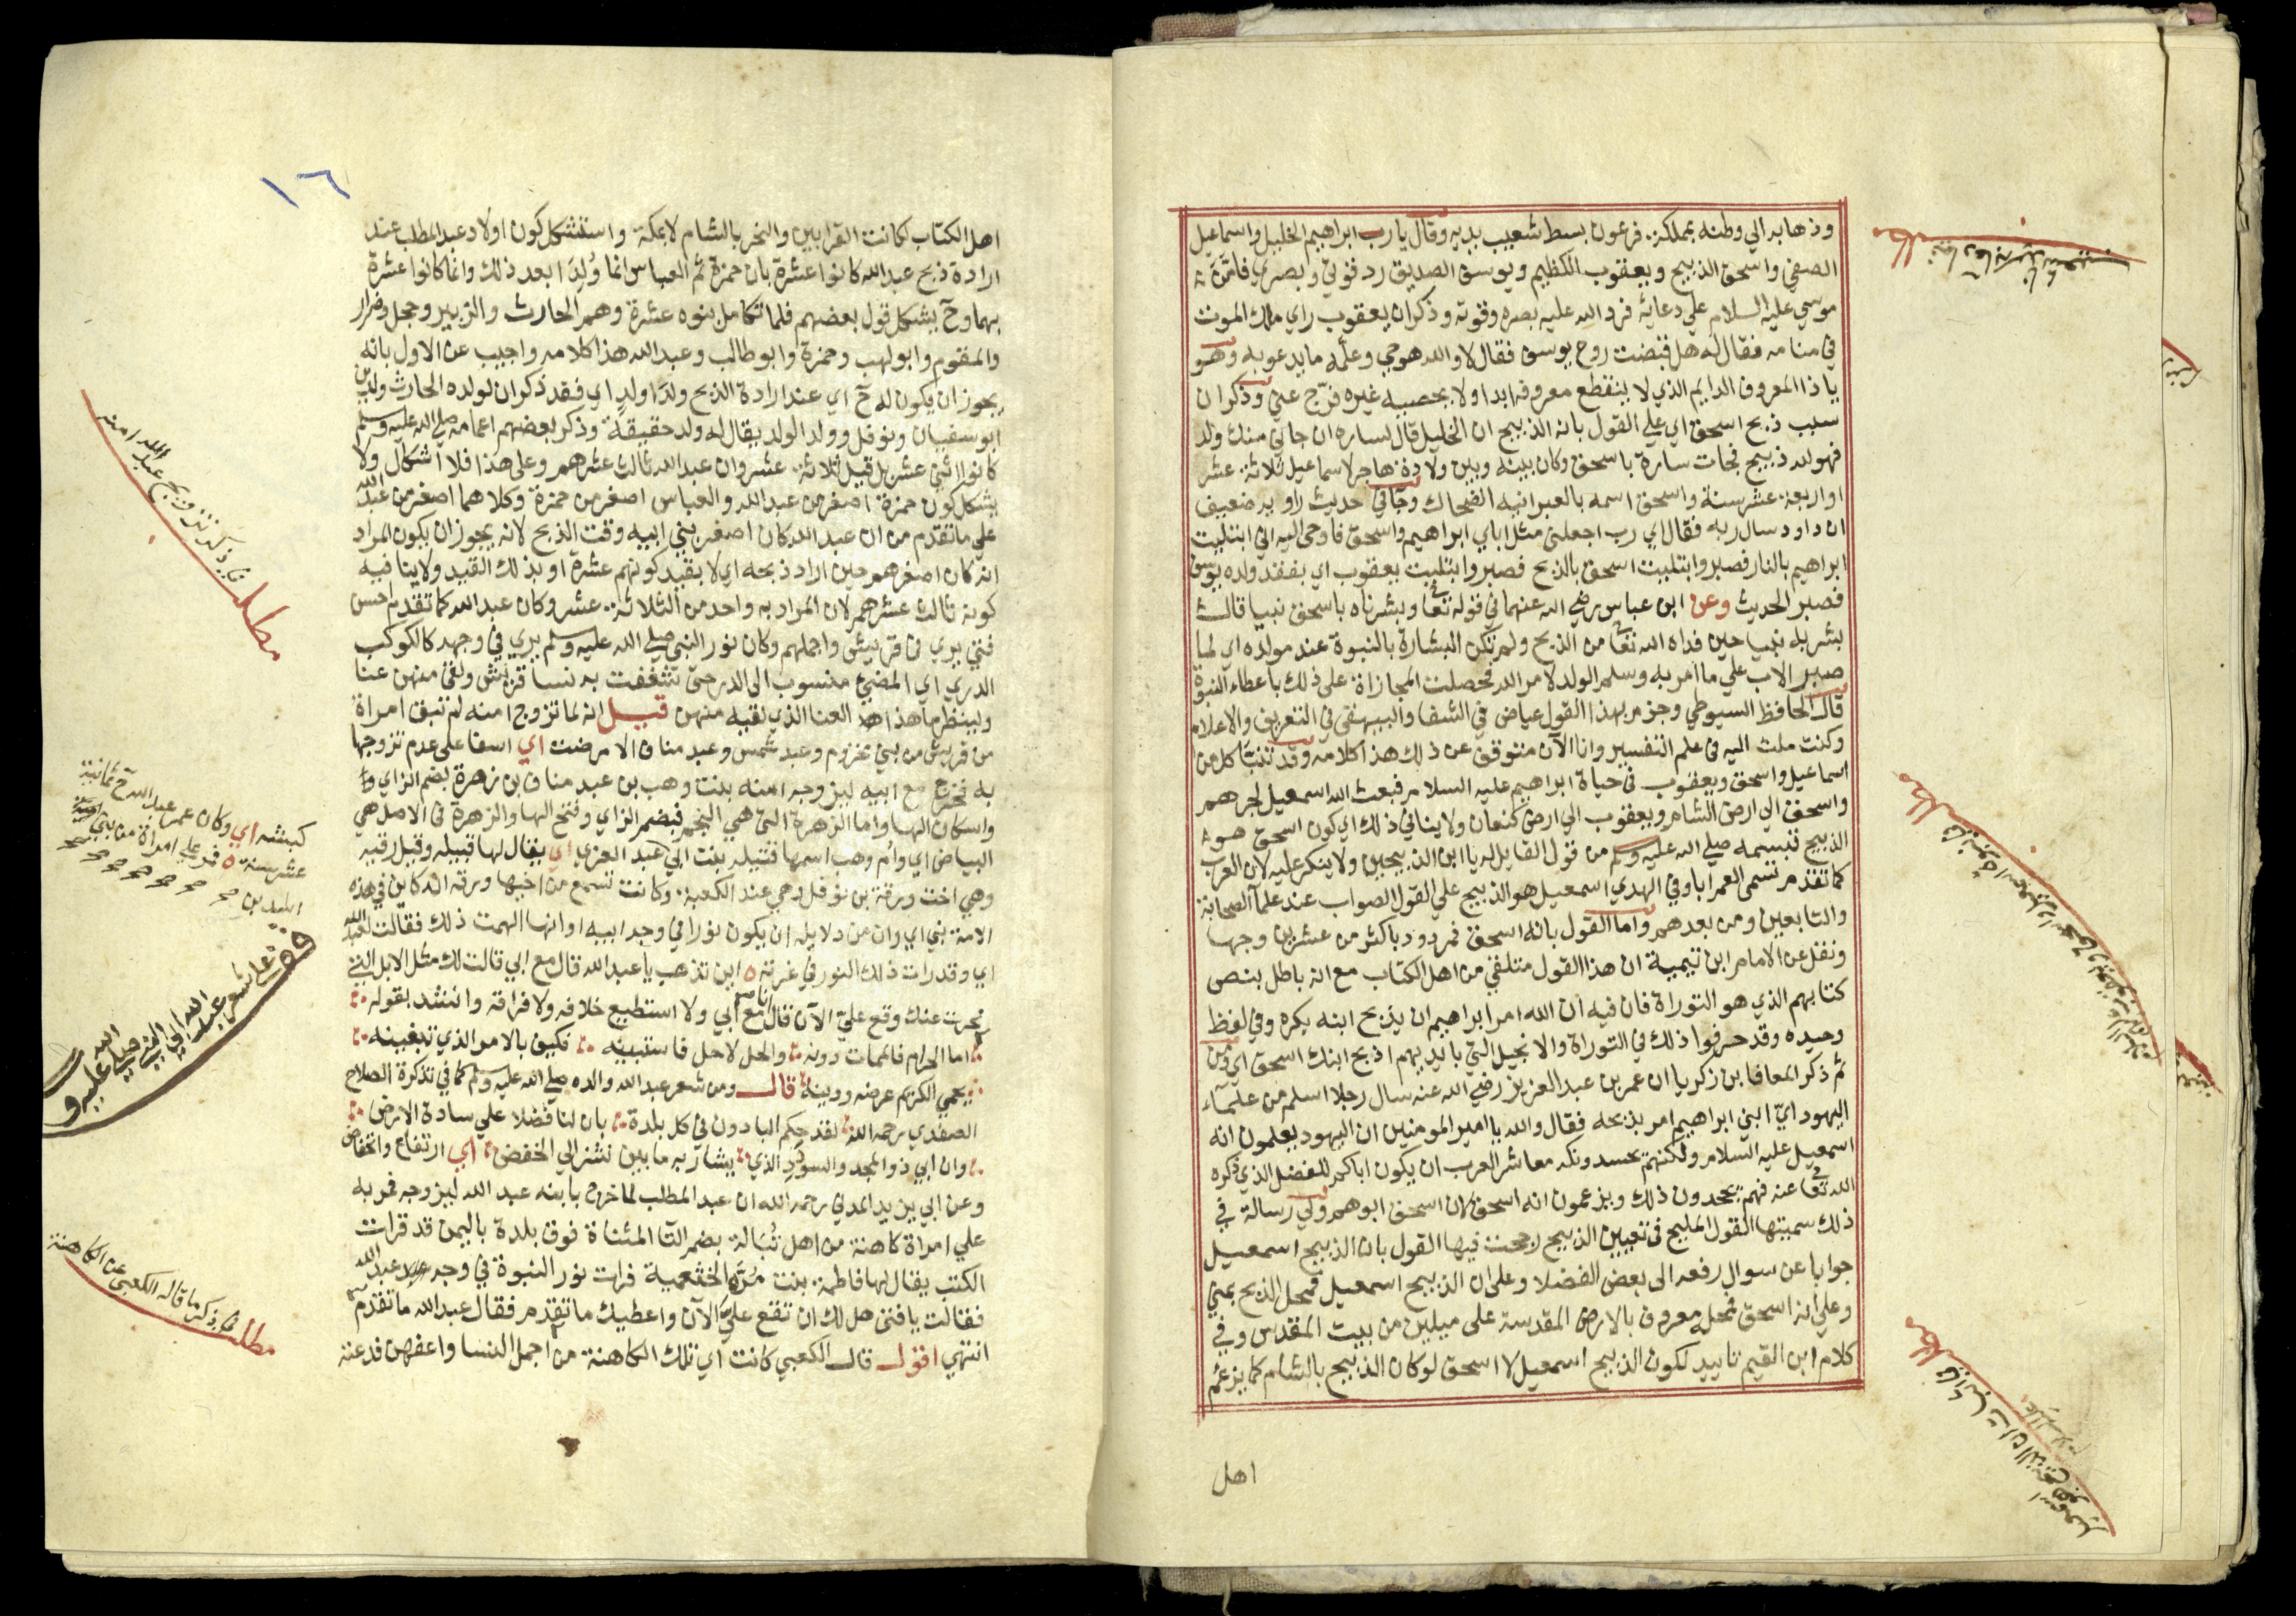 وذهابه الي وطنه بمملكة فرعون بسط شعيب يديه وقال يا رب ابراهيم الخليل واسماعيل
الصفي واسحق الذبيح ويعقوب الكظيم ويوسف الصديق رد قوتي وبصري فامّن
موسي عليه السلام علي دعائه فرد الله عليه بصره وقوته وذكر ان يعقوب راي ملك الموت
في منامه فقال له هل قبضت روح يوسف فقال لا والله هو حي وعلّمه ما يدعو به وهو
يا ذا المعروف الدايم الذي لا ينقطع معروفه ابدا ولا يحصيه غيره فرّج عني وذكر ان
سبب ذبح اسحق اي علي القول بانه الذبيح ان الخليل قال لساره ان جاني منك ولد
فهو لله ذبيح فجات سارة باسحق وكان بينه وبين ولادة هاجر لاسماعيل ثلاثة عشر
او اربعة عشر سنة واسحق اسمه بالعبرانيه الضحاك وجا في حديث راويه ضعيف
ان داود سال ربه فقال اي رب اجعلني مثل اباي ابراهيم واسحق فاوحي اليه اني ابتليت
ابراهيم بالنار فصبر وابتليت اسحق بالذبح فصبر وابتليت يعقوب اي بفقد ولده يوسف
فصبر الحديث وعن ابن عباس رضي الله عنهما في قوله تعا وبشرناه باسحق نبيا قالت
بشر به نبيا حين فداه الله تعا من الذبح ولم تكن البشارة بالنبوة عند مولده اي لما
صبر الاب علي ما امر به وسلم الولد لامر الله فحصلت المجازاة علي ذلك باعطاء النبوة
قال الحافظ السيوطي وجزم بهذا القول عياض في الشفا والبيهقي في التعريف والاعلام
وكنت ملت اليه في علم التفسير وانا الآن متوقف عن ذلك هذا كلامه وقد تنبّا كل من
اسماعيل واسحق ويعقوب في حياة ابراهيم عليه السلام فبعث الله اسمعيل لجرهم
واسحق الي ارض الشام ويعقوب الي ارض كنعان ولا ينافي ذلك اي كون اسحق هو
الذبيح تبسمه صلي الله عليه وسلم من قول القايل له يا ابن الذبيحين ولا ينكر عليه لان العرب
كما تقدم تسمي العم ابا وفي الهدي اسمعيل هو الذبيح علي القول الصواب عند علمآ الصحابة
والتابعين ومن بعدهم واما القول بانه اسحق فمردود باكثر من عشرين وجها
ونقل عن الامام ابن تيمية ان هذا القول متلقي من اهل الكتاب مع انه باطل بنص
كتابهم الذي هو التوراة فان فيه ان الله امر ابراهيم ان يذبح ابنه بكره وفي لفظ
وحيده وقد حرفوا ذلك في التوراة والانجيل التي بايديهم اذبح ابنك اسحق اي ومن
ثم ذكر المعافا بن زكريا ان عمر بن عبد العزيز رضي الله عنه سال رجلا اسلم من علمآء
اليهود ايّ ابني ابراهيم امر بذبحه فقال والله يا امير المومنين ان اليهود يعلمون انه
اسمعيل عليه السلام ولكنهم يحسدونكم معاشر العرب ان يكون اباكم للفضل الذي ذكره
الله تعا عنه فهم يجحدون ذلك ويزعمون انه اسحق لان اسحق ابوهم ولي رسالة في
ذلك سميتها القول المليح في تعيين الذبيح رجحت فيها القول بان الذبيح اسمعيل
جوابا عن سوال رفعه الي بعض الفضلا وعلي ان الذبيح اسمعيل فمحل الذبح بمني
وعلي انه اسحق فمحله معروف بالارض المقدسة علي ميلين من بيت المقدس وفي
كلام ابن القيم تاييد لكون الذبيح اسمعيل لا اسحق لو كان الذبيح بالشام كما يزعم
اهل
١٦
اهل الكتاب لكانت القرابين والنحر بالشام لا بمكة واستشكل كون اولاد عبد المطلب عند
ارادة ذبح عبد الله كانوا عشرة بان حمزة ثم العباس انما وُلدا بعد ذلك وانما كانوا عشرة
بهما وح يشكل قول بعضهم فلما تكامل بنوه عشرة وهم الحارث والزبير وحجل وضرار
والمقوم وابو لهب وحمزة وابو طالب وعبد الله هذا كلامه واجيب عن الاول بانه
يجوز ان يكون له ح اي عند ارادة الذبح ولدا ولد اي فقد ذكر ان لولده الحارث ولدين
ابو سفيان ونوفل وولد الولد يقال له ولد حقيقة وذكر بعضهم اعمامه صلي الله عليه وسلم
كانوا اثني عشر بل قيل ثلاثة عشر وان عبد الله ثالث عشرهم وعلي هذا فلا اشكال ولا
يشكل كون حمزة اصغر من عبد الله والعباس اصغر من حمزة وكلاهما اصغر من عبد الله
علي ما تقدم من ان عبد الله كان اصغر بني ابيه وقت الذبح لانه يجوز ان يكون المراد
انه كان اصغرهم حين اراد ذبحه اي لا بقيد كونهم عشرة او بذلك القيد ولا ينافيه
كونه ثالث عشرهم لان المراد به واحد من الثلاثة عشر وكان عبد الله كما تقدم احسن
فتي يري في قريش واجملهم وكان نور النبي صلي الله عليه وسلم يري في وجهه كالكوكب
الدري اي المضئ منسوب الي الدر حتي شغفت به نسا قريش ولقي منهن عنا
ولينظر ما هذا العنا الذي لقيه منهن قيل انه لما تزوج امنه لم تبق امراة
من قريش من بني مخزوم وعبد شمس وعبد مناف الا مرضت اي اسفا علي عدم تزوجها
به فخرج مع ابيه ليزوجه امنه بنت وهب بن عبد مناف بن زهرة بضم الزاي
واسكان الها واما الزهرة التي هي النجم فبضم الزاي وفتح الها والزهرة في الاصل هي
البياض اي وام وهب اسمها قتيله بنت ابي كبشه اي وكان عمر عبد الله ح ثمانية
عشر سنة فمر علي امراة من بني اسد بن
عبد العزي اي يقال لها قبيله وقيل رقيه
وهي اخت ورقة بن نوفل وهي عند الكعبة وكانت تسمع من اخيها ورقه انه كاين في هذه
الامة نبي اي وان من دلايله ان يكون نورا في وجه ابيه او انها الهمت ذلك فقالت لعبد الله
اي وقد رات ذلك النور في غرته اين تذهب يا عبد الله قال مع ابي قالت لك مثل الابل التي
نحرت عنك وقع عليّ الآن قال انا مع ابي ولا استطيع خلافه ولا فراقه وانشد بقوله
اما الحرام فالممات دونه والحل لا حل فاستبينه فكيف بالامر الذي تبغينه
يحمي الكريم عرضه ودينه قال ومن شعر عبد الله والده صلي الله عليه وسلم كما في تذكرة الصلاح
الصفدي رحمه الله لقد حكم البادون في كل بلدة بان لنا فضلا علي سادة الارض
وان ابي ذو المجد والسودد الذي يشار به ما بين نشز الي الخفض اي ارتفاع وانخفاض
وعن ابي يزيد المدني رحمه الله ان عبد المطلب لما خرج بابنه عبد الله ليزوجه فمر به
علي امراة كاهنة من اهل تُبَالة بضم التآ المثناة فوق بلدة باليمن قد قرات
الكتب يقال لها فاطمة بنت مُرّ الخثعمية فرات نور النبوة في وجه عبد الله
فقالت يا فتي هل لك ان تقع عليّ الآن واعطيك ما تقدم فقال عبد الله ما تقدم
انتهي اقول قال الكعبي كانت اي تلك الكاهنة من اجمل النسا واعفهن فدعته
مطلب في ذكر تزويج عبد الله امنه
مطلب في ذكر ما قاله الكعبي عن الكاهنة